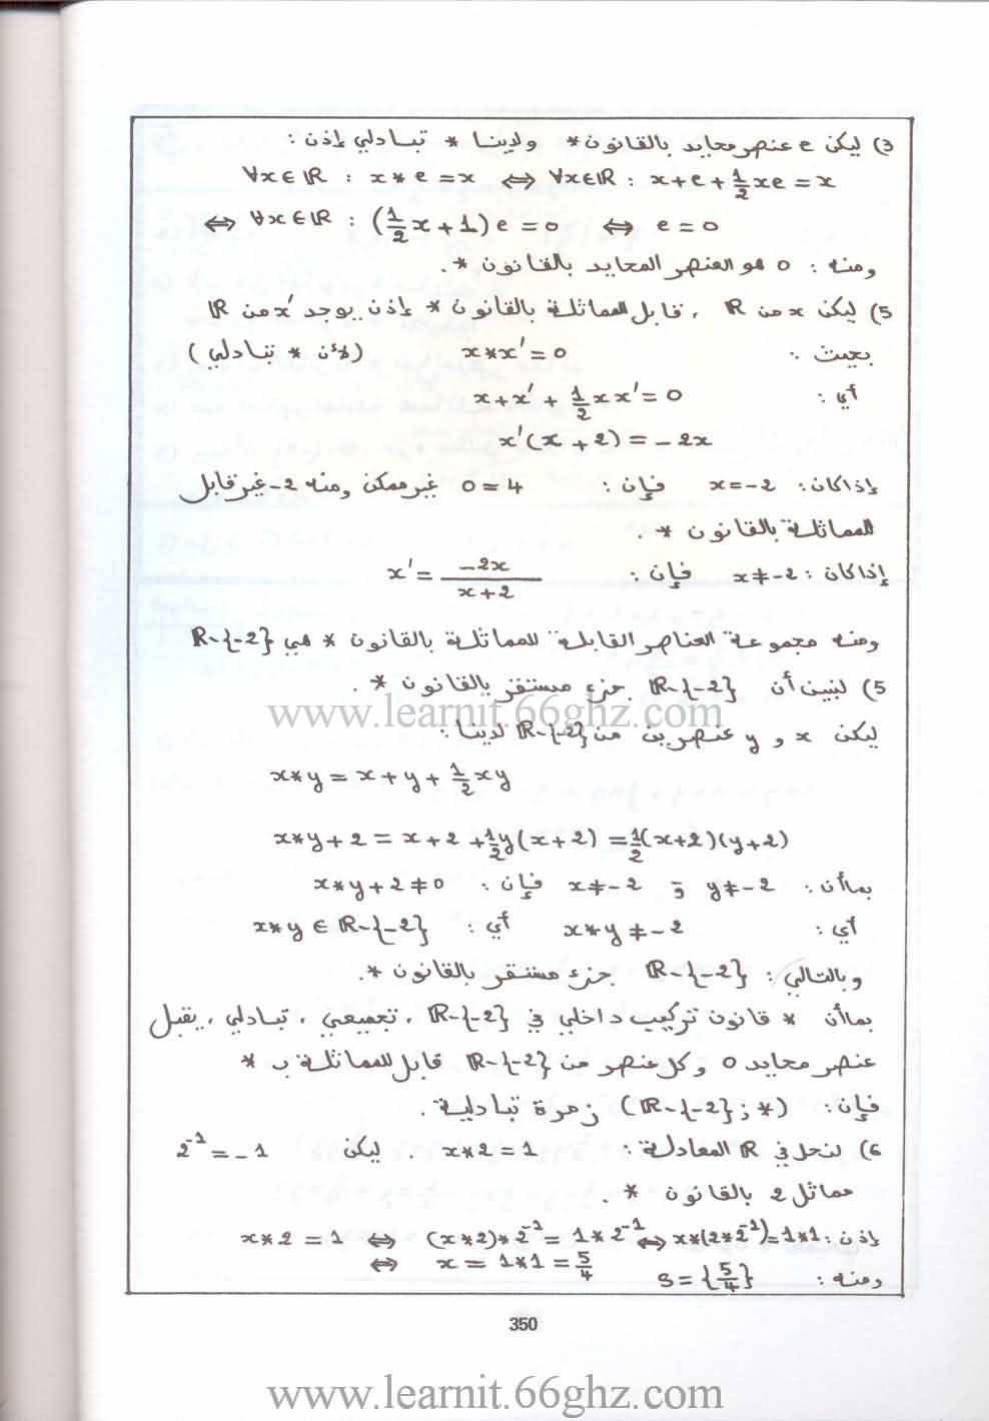 3) ليكن e عنصر محايد بالقانون * ولدينا * تبادلي إذن :
∀x∈ℝ : x*e = x ⇔ ∀x∈ℝ : x+e+½xe = x
⇔ ∀x∈ℝ : (½x+1)e = 0 ⇔ e = 0
ومنه : 0 هو العنصر المحايد بالقانون *.
5) ليكن x من ℝ ، قابل للمماثلة بالقانون * إذن يوجد x' من ℝ
بحيث : x*x' = 0 (لأن * تبادلي)
أي : x+x'+½xx' = 0
x'(x+2) = -2x
إذا كان : x=-2 فإن : 0=4 غير ممكن ومنه -2 غير قابل
للمماثلة بالقانون *.
إذا كان : x≠-2 فإن : x' = -2x/(x+2)
ومنه مجموعة العناصر القابلة للمماثلة بالقانون * هي ℝ-{-2}
5) لنبين أن ℝ-{-2} جزء مستقر بالقانون *.
www.learnit.66ghz.com
ليكن x و y عنصرين من ℝ-{-2} لدينا :
x*y = x+y+½xy
x*y+2 = x+2+½y(x+2) = ½(x+2)(y+2)
بما أن : y≠-2 و x≠-2 فإن : x*y+2≠0
أي : x*y≠-2 أي : x*y ∈ ℝ-{-2}
وبالتالي : ℝ-{-2} جزء مستقر بالقانون *.
بما أن * قانون تركيب داخلي في ℝ-{-2} ، تجميعي ، تبادلي ، يقبل
عنصر محايد 0 وكل عنصر من ℝ-{-2} قابل للمماثلة ب *
فإن : (ℝ-{-2};*) زمرة تبادلية .
6) لنحل في ℝ المعادلة : x*2=1 . ليكن 2⁻¹=-1
مماثل 2 بالقانون *.
إذن : x*2=1 ⇔ (x*2)*2⁻¹=1*2⁻¹ ⇔ x*(2*2⁻¹)=1*1
⇔ x = 1*1 = 5/4
ومنه : S={5/4}
350
www.learnit.66ghz.com